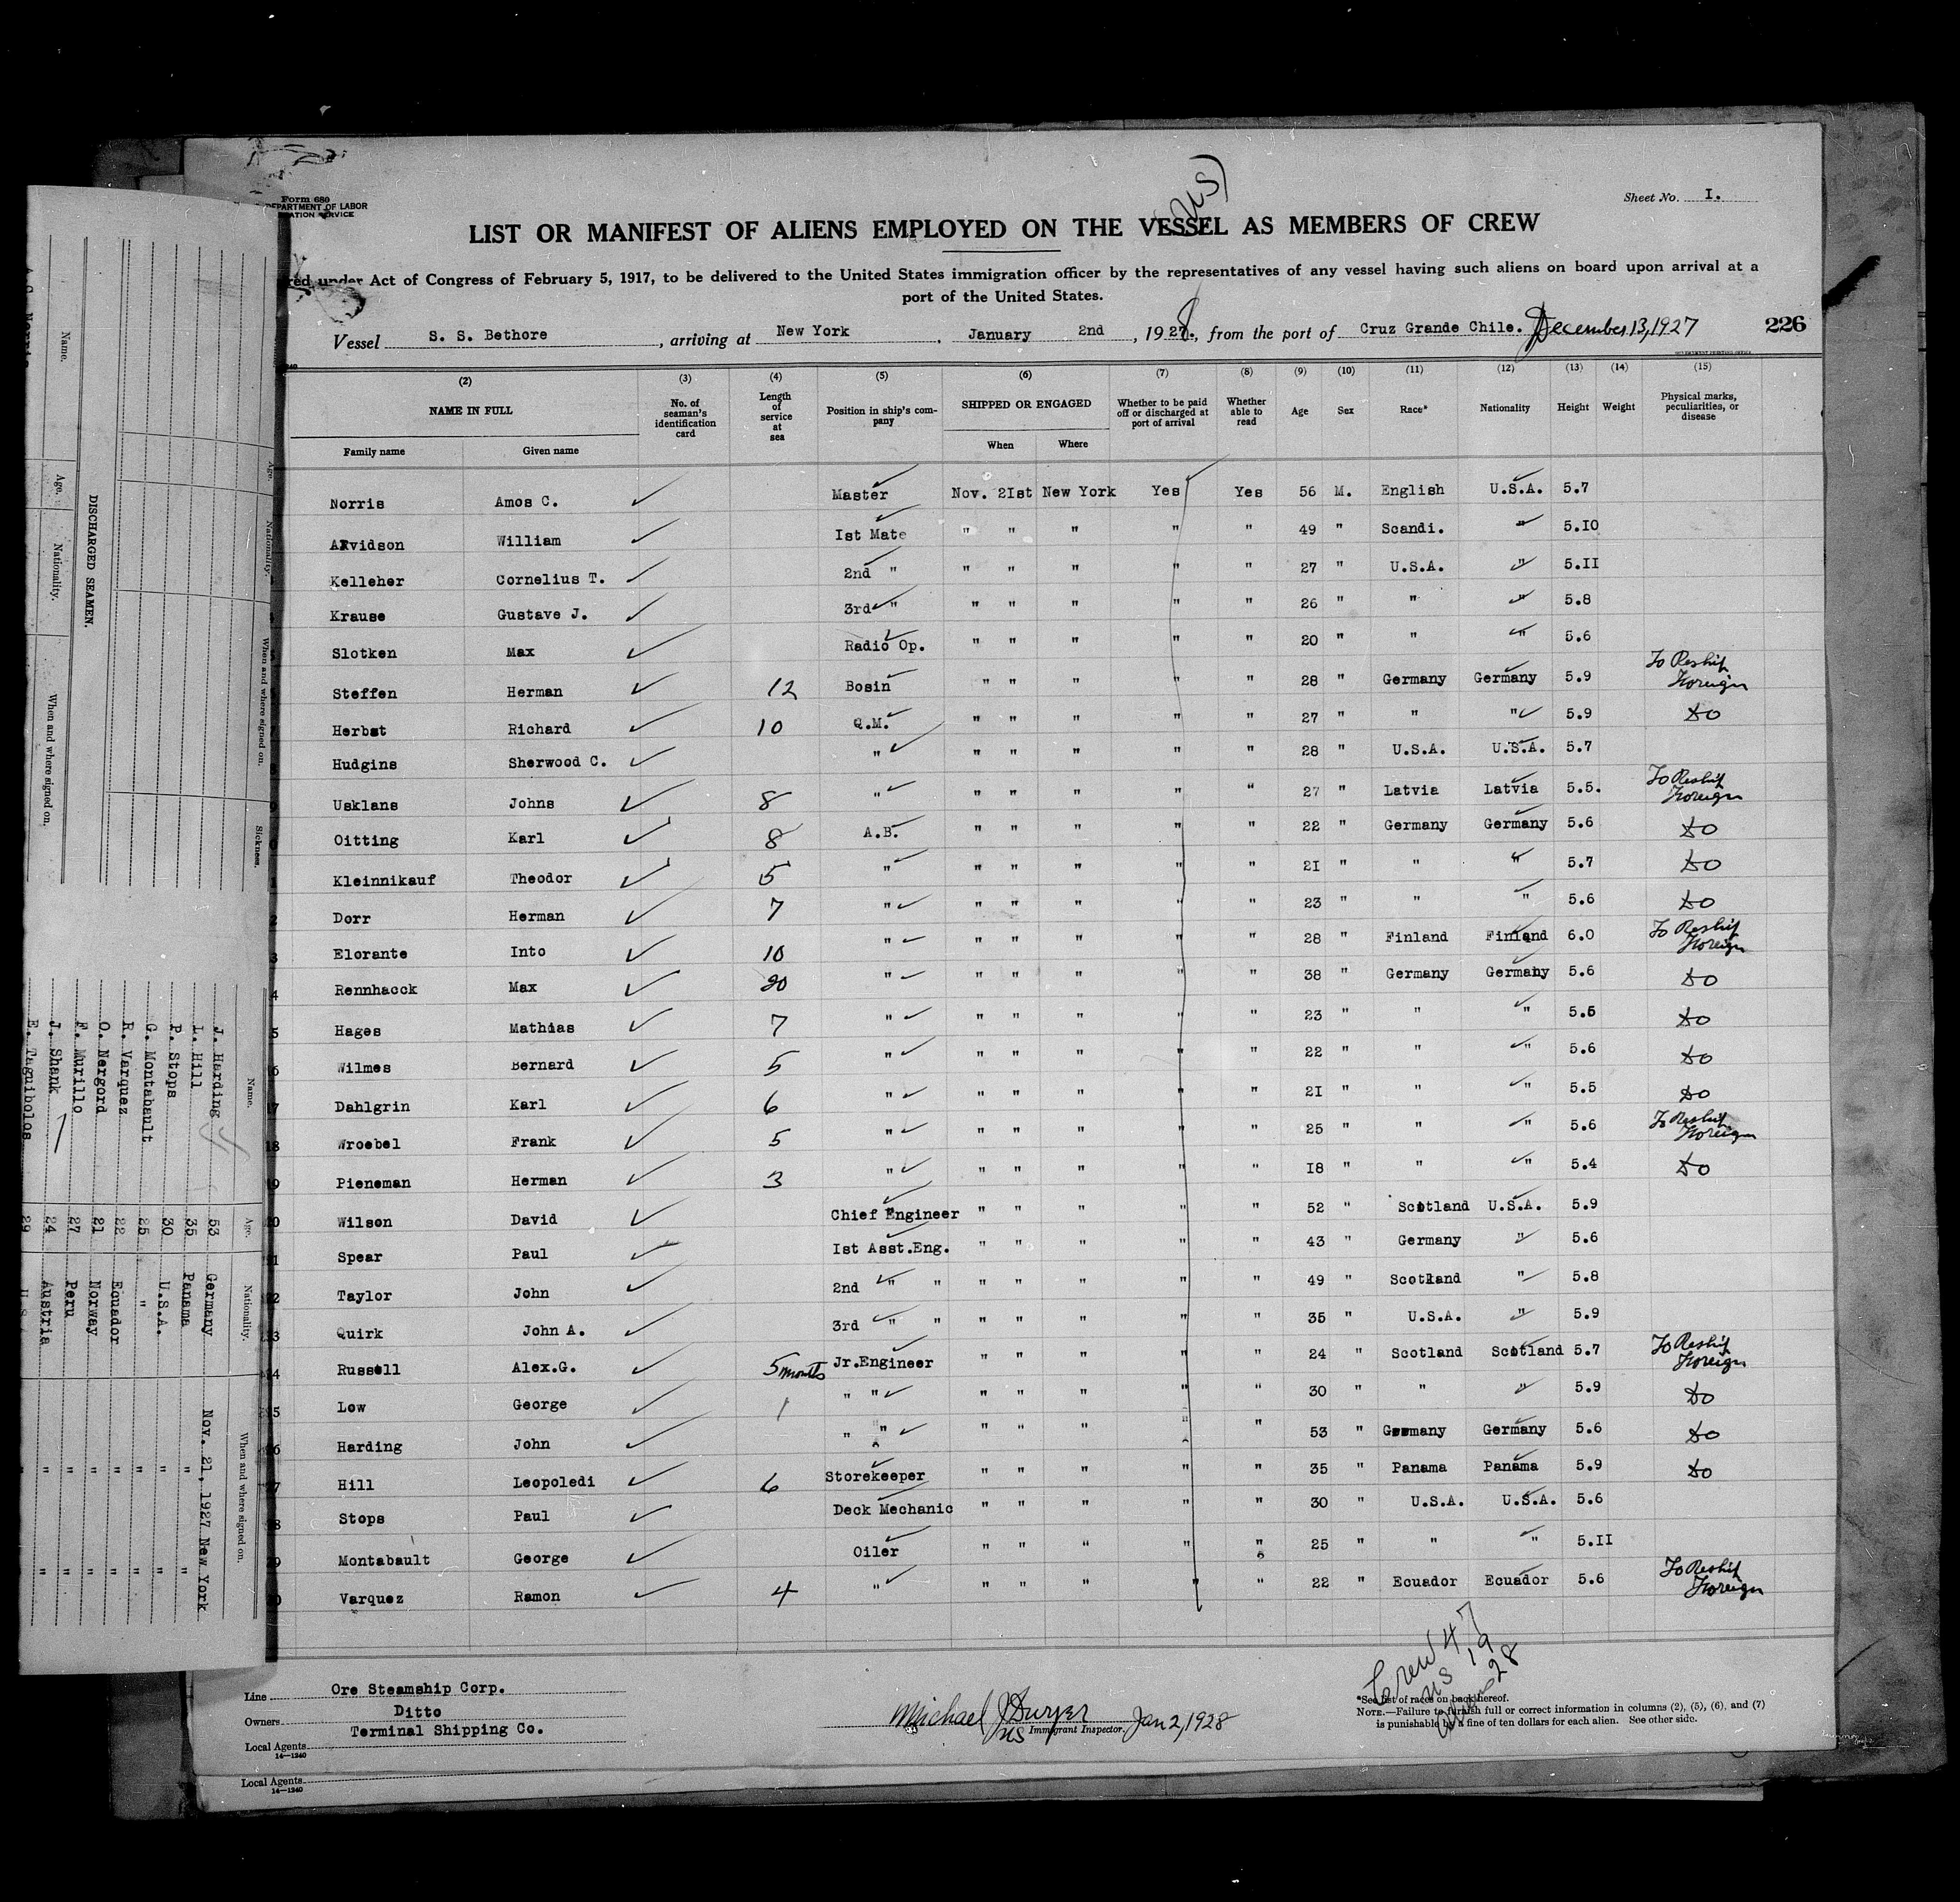 Form 680
DEPARTMENT OF LABOR
(US)
Sheet No. I.
LIST OR MANIFEST OF ALIENS EMPLOYED ON THE VESSEL AS MEMBERS OF CREW
under Act of Congress of February 5, 1917, to be delivered to the United States immigration officer by the representatives of any vessel having such aliens on board upon arrival at a
port of the United States.
Vessel S. S. Bethore, arriving at New York, January 2nd, 1928, from the port of Cruz Grande Chile. December 13, 1927 226
(2) (3) (4) (5) (6) (7) (8) (9) (10) (11) (12) (13) (14) (15)
NAME IN FULL No. of seaman's identification card Length of service at sea Position in ship's company SHIPPED OR ENGAGED Whether to be paid off or discharged at port of arrival Whether able to read Age Sex Race* Nationality Height Weight Physical marks, peculiarities, or disease
Family name Given name When Where
Norris Amos C. Master Nov. 2Ist New York Yes Yes 56 M. English U.S.A. 5.7
Arvidson William Ist Mate " " " " " 49 " Scandi. " 5.IO
Kelleher Cornelius T. 2nd " " " " " " 27 " U.S.A. " 5.II
Krause Gustave J. 3rd " " " " " " 26 " " " 5.8
Slotken Max Radio Op. " " " " " 20 " " " 5.6
Steffen Herman 12 Bosin " " " " " 28 " Germany Germany 5.9 To Reship Foreign
Herbst Richard 10 Q.M. " " " " " 27 " " " 5.9 Do
Hudgins Sherwood C. " " " " " " 28 " U.S.A. U.S.A. 5.7
Usklans Johns 8 " " " " " " 27 " Latvia Latvia 5.5. To Reship Foreign
Oitting Karl 8 A.B. " " " " " 22 " Germany Germany 5.6 Do
Kleinnikauf Theodor 5 " " " " " " 2I " " " 5.7 Do
Dorr Herman 7 " " " " " " 23 " " " 5.6 Do
Elorante Into 10 " " " " " " 28 " Finland Finland 6.0 To Reship Foreign
Rennhacck Max 20 " " " " " " 38 " Germany Germany 5.6 Do
Hages Mathias 7 " " " " " " 23 " " " 5.6 Do
Wilmes Bernard 5 " " " " " " 22 " " " 5.6 Do
Dahlgrin Karl 6 " " " " " " 2I " " " 5.5 Do
Wroebel Frank 5 " " " " " " 25 " " " 5.6 To Reship Foreign
Pieneman Herman 3 " " " " " " I8 " " " 5.4 Do
Wilson David Chief Engineer " " " " " 52 " Scotland U.S.A. 5.9
Spear Paul Ist Asst.Eng. " " " " " 43 " Germany " 5.6
Taylor John 2nd " " " " " " " 49 " Scotland " 5.8
Quirk John A. 3rd " " " " " " " 35 " U.S.A. " 5.9
Russell Alex.G. 5 months Jr.Engineer " " " " " 24 " Scotland Scotland 5.7 To Reship Foreign
Low George 1 " " " " " " " 30 " " " 5.9 Do
Harding John " " " " " " " 53 " Germany Germany 5.6 Do
Hill Leopoledi 6 Storekeeper " " " " " 35 " Panama Panama 5.9 Do
Stops Paul Deck Mechanic " " " " " 30 " U.S.A. U.S.A. 5.6
Montabault George Oiler " " " " " 25 " " " 5.II
Varquez Ramon 4 " " " " " " 22 " Ecuador Ecuador 5.6 To Reship Foreign
Crew 47
US 19
Alien 28
Line Ore Steamship Corp.
Owners Ditto
Local Agents Terminal Shipping Co.
14—1240
Michael J Dwyer
US Immigrant Inspector. Jan 2, 1928
*See list of races on back hereof.
NOTE.—Failure to furnish full or correct information in columns (2), (5), (6), and (7)
is punishable by a fine of ten dollars for each alien. See other side.
Local Agents
14—1240
DISCHARGED SEAMEN.
Name. Age. Nationality. When and where signed on.
Age. Nationality. When and where signed on. Sickness.
Name. Age. Nationality. When and where signed on.
J. Harding 53 Germany Nov. 21, 1927 New York
L. Hill 35 Panama " "
P. Stops 30 U.S.A. " "
G. Montabault 25 " " "
R. Varquez 22 Ecuador " "
O. Nergord 21 Norway " "
F. Murillo 27 Peru " "
J. Shank 24 Austria " "
E. Taguibolos 29